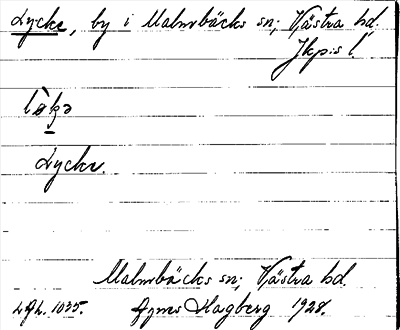 Lycke, by i Malmbäcks sn; Västra hd.
Jkp:s l.
Lycke.
Malmbäcks sn; Västra hd.
Agnes Hagberg 1928.